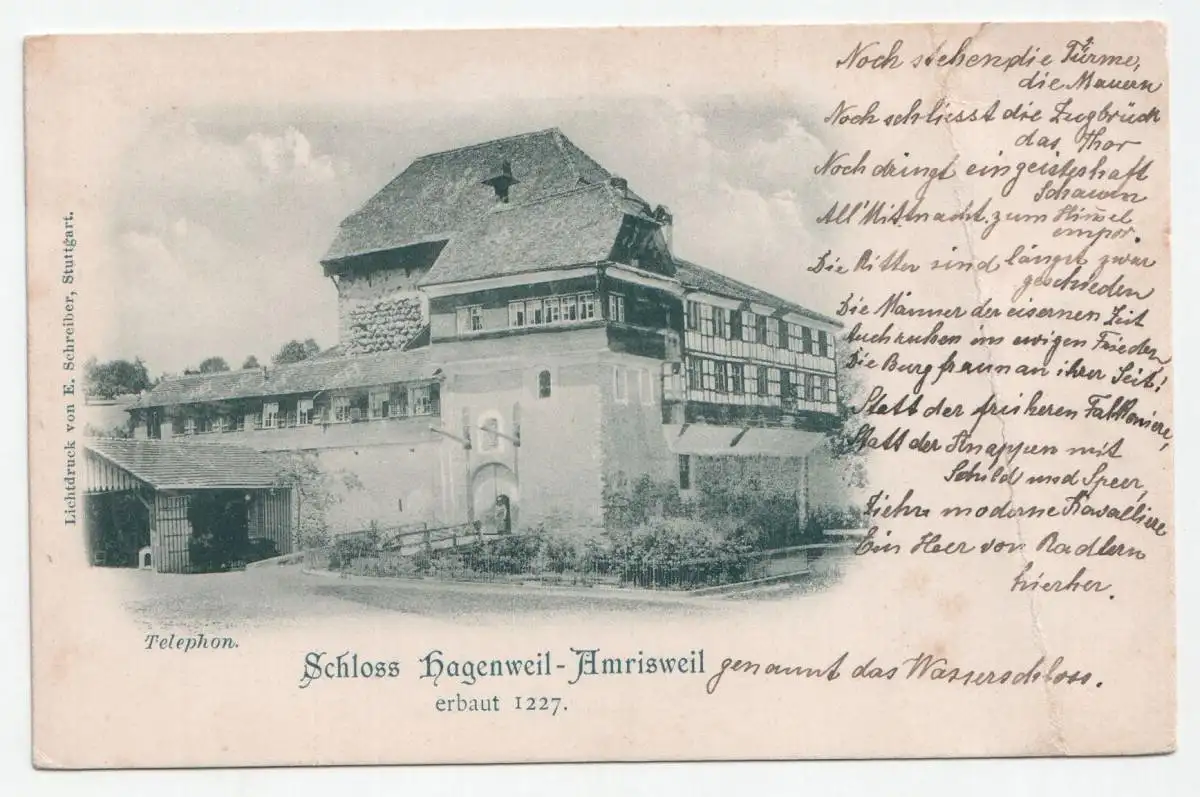 Noch stehen die Türme,
die Mauern
Noch schliesst die Zugbrück
das Thor
Noch dringt ein geisterhaft
Schauern
All' Mitnacht zum Him̅el
empor.
Die Ritter sind längst zwar
geschieden
Die Männer der eisernen Zeit
Auch ruhen im ewigen Frieden,
Die Burgfraun an ihrer Seit!
Statt der früheren Falkoniere,
Statt der Knappen mit
Schild und Speer,
Ziehn moderne Kavalliere
Ein Heer von Radlern
hierher.
Lichtdruck von E. Schreiber, Stuttgart.
Telephon.
Schloss Hagenweil-Amrisweil genannt das Wasserschloss.
erbaut 1227.